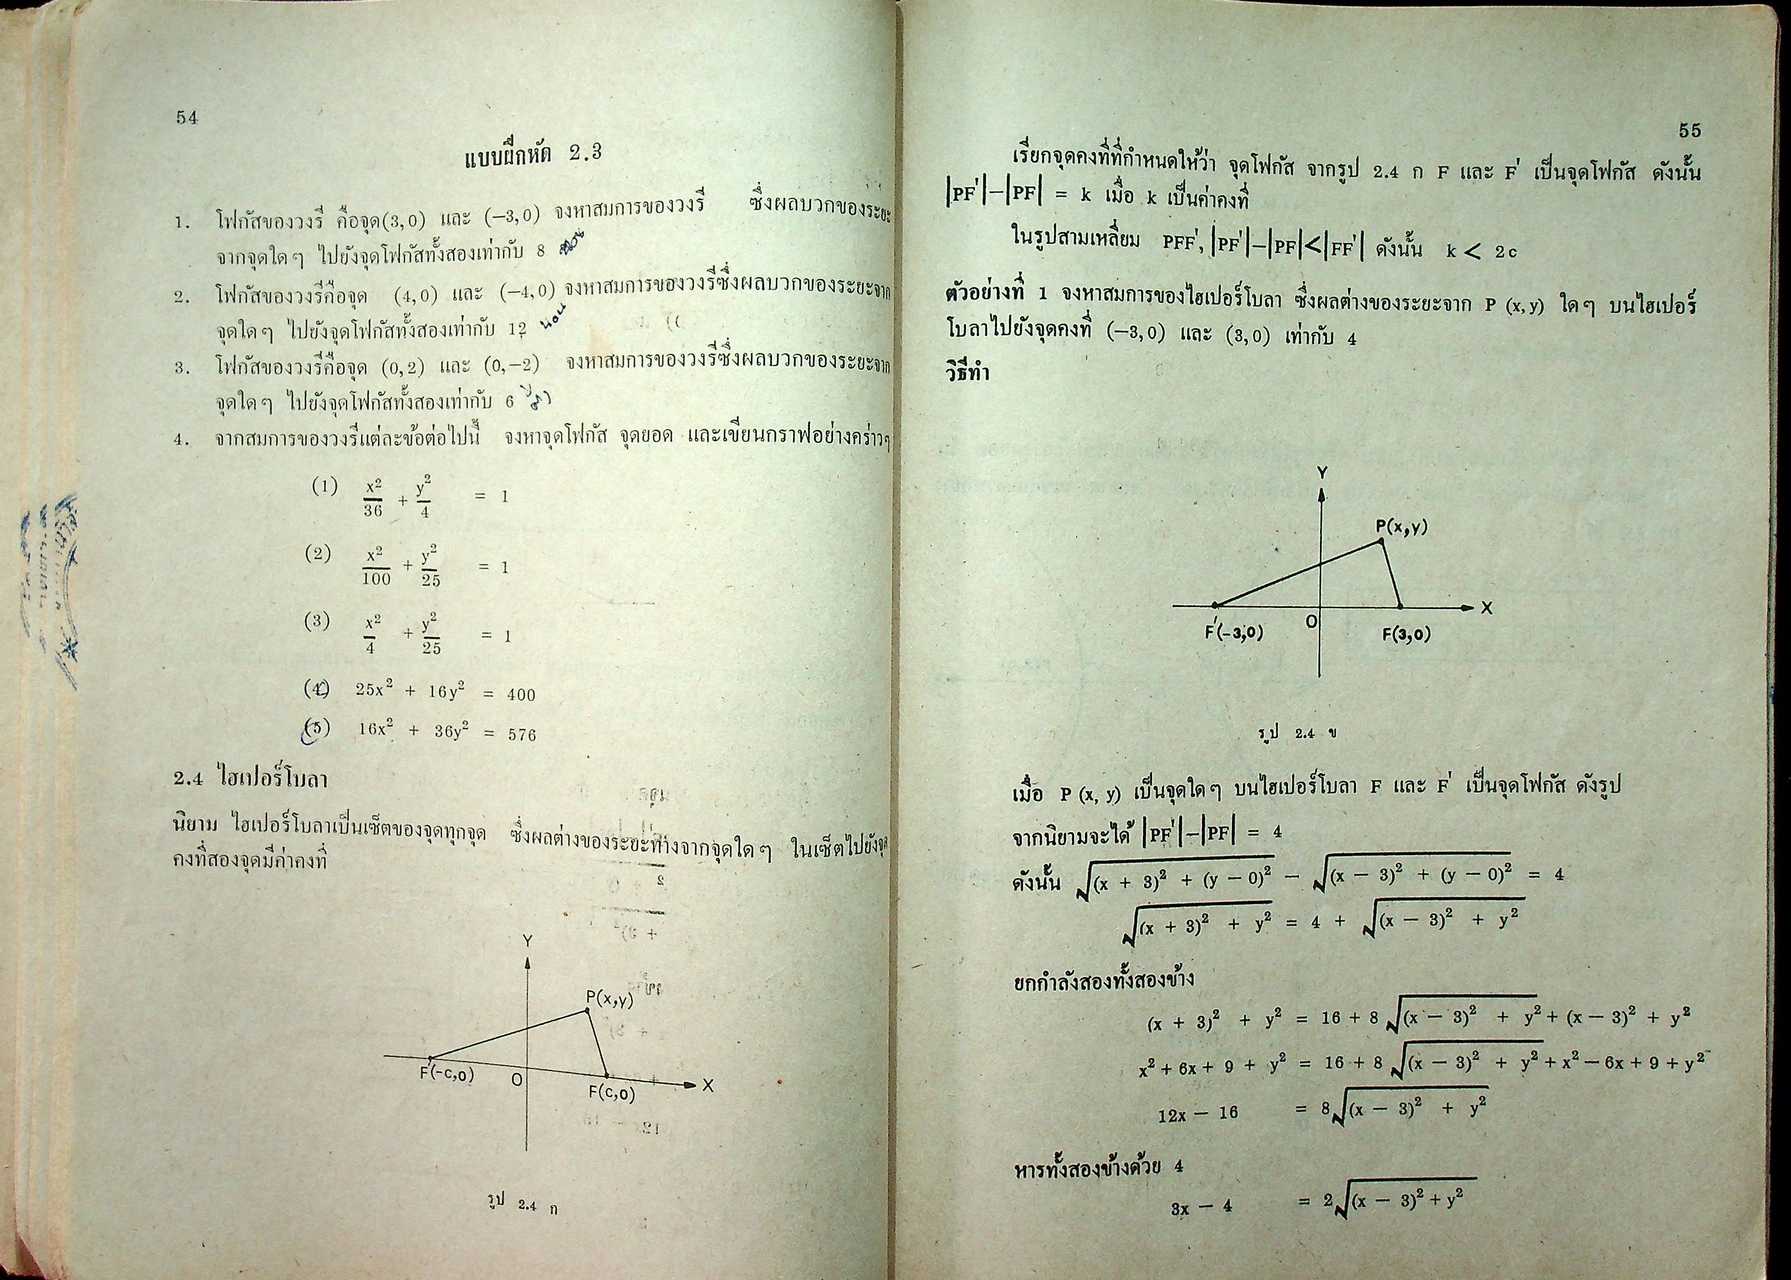 54
แบบฝึกหัด 2.3
1. โฟกัสของวงรี คือจุด(3,0) และ (−3,0) จงหาสมการของวงรี ซึ่งผลบวกของระยะ
จากจุดใดๆ ไปยังจุดโฟกัสทั้งสองเท่ากับ 8
2. โฟกัสของวงรีคือจุด (4,0) และ (−4,0) จงหาสมการของวงรีซึ่งผลบวกของระยะจาก
จุดใดๆ ไปยังจุดโฟกัสทั้งสองเท่ากับ 12
3. โฟกัสของวงรีคือจุด (0,2) และ (0,−2) จงหาสมการของวงรีซึ่งผลบวกของระยะจาก
จุดใดๆ ไปยังจุดโฟกัสทั้งสองเท่ากับ 6
4. จากสมการของวงรีแต่ละข้อต่อไปนี้ จงหาจุดโฟกัส จุดยอด และเขียนกราฟอย่างคร่าวๆ
(1) x²/36 + y²/4 = 1
(2) x²/100 + y²/25 = 1
(3) x²/4 + y²/25 = 1
(4) 25x² + 16y² = 400
(5) 16x² + 36y² = 576
2.4 ไฮเปอร์โบลา
นิยาม ไฮเปอร์โบลาเป็นเซ็ตของจุดทุกจุด ซึ่งผลต่างของระยะห่างจากจุดใดๆ ในเซ็ตไปยังจุด
คงที่สองจุดมีค่าคงที่
Y
P(x,y)
F'(-c,0)
O
F(c,0)
X
รูป 2.4 ก
55
เรียกจุดคงที่ที่กำหนดให้ว่า จุดโฟกัส จากรูป 2.4 ก F และ F' เป็นจุดโฟกัส ดังนั้น
|PF'|−|PF| = k เมื่อ k เป็นค่าคงที่
ในรูปสามเหลี่ยม PFF', |PF'|−|PF|<|FF'| ดังนั้น k < 2c
ตัวอย่างที่ 1 จงหาสมการของไฮเปอร์โบลา ซึ่งผลต่างของระยะจาก P (x,y) ใดๆ บนไฮเปอร์
โบลาไปยังจุดคงที่ (−3,0) และ (3,0) เท่ากับ 4
วิธีทำ
Y
P(x,y)
X
F'(-3,0)
O
F(3,0)
รูป 2.4 ข
เมื่อ P (x, y) เป็นจุดใดๆ บนไฮเปอร์โบลา F และ F' เป็นจุดโฟกัส ดังรูป
จากนิยามจะได้ |PF'|−|PF| = 4
ดังนั้น √((x + 3)² + (y − 0)²) − √((x − 3)² + (y − 0)²) = 4
√((x + 3)² + y²) = 4 + √((x − 3)² + y²)
ยกกำลังสองทั้งสองข้าง
(x + 3)² + y² = 16 + 8√((x − 3)² + y²) + (x − 3)² + y²
x² + 6x + 9 + y² = 16 + 8√((x − 3)² + y²) + x² − 6x + 9 + y²
12x − 16 = 8√((x − 3)² + y²)
หารทั้งสองข้างด้วย 4
3x − 4 = 2√((x − 3)² + y²)